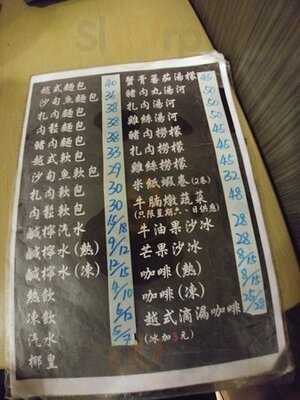 越式麵包 40
沙甸魚麵包 36
扎肉麵包 38
肉鬆麵包 38
豬肉麵包 38
越式軟包 33
沙甸魚軟包 29
扎肉軟包 30
肉鬆軟包 30
鹹檸汽水 15/18
鹹檸水(熱) 9/12
鹹檸水(凍) 12/15
熱飲 7/10
凍飲
汽水 5/7
椰皇
蟹膏蕃茄湯檬 45
豬肉丸湯河 50
扎肉湯河 50
雞絲湯河 50
豬肉撈檬 45
扎肉撈檬 45
雞絲撈檬 45
米紙蝦卷(2卷) 32
牛腩燉蔬菜 48
(只限星期六、日供應)
牛油果沙冰 28
芒果沙冰 28
咖啡(熱) 8/15
咖啡(凍) 8/15
越式滴漏咖啡 25/28
(冰加3元)